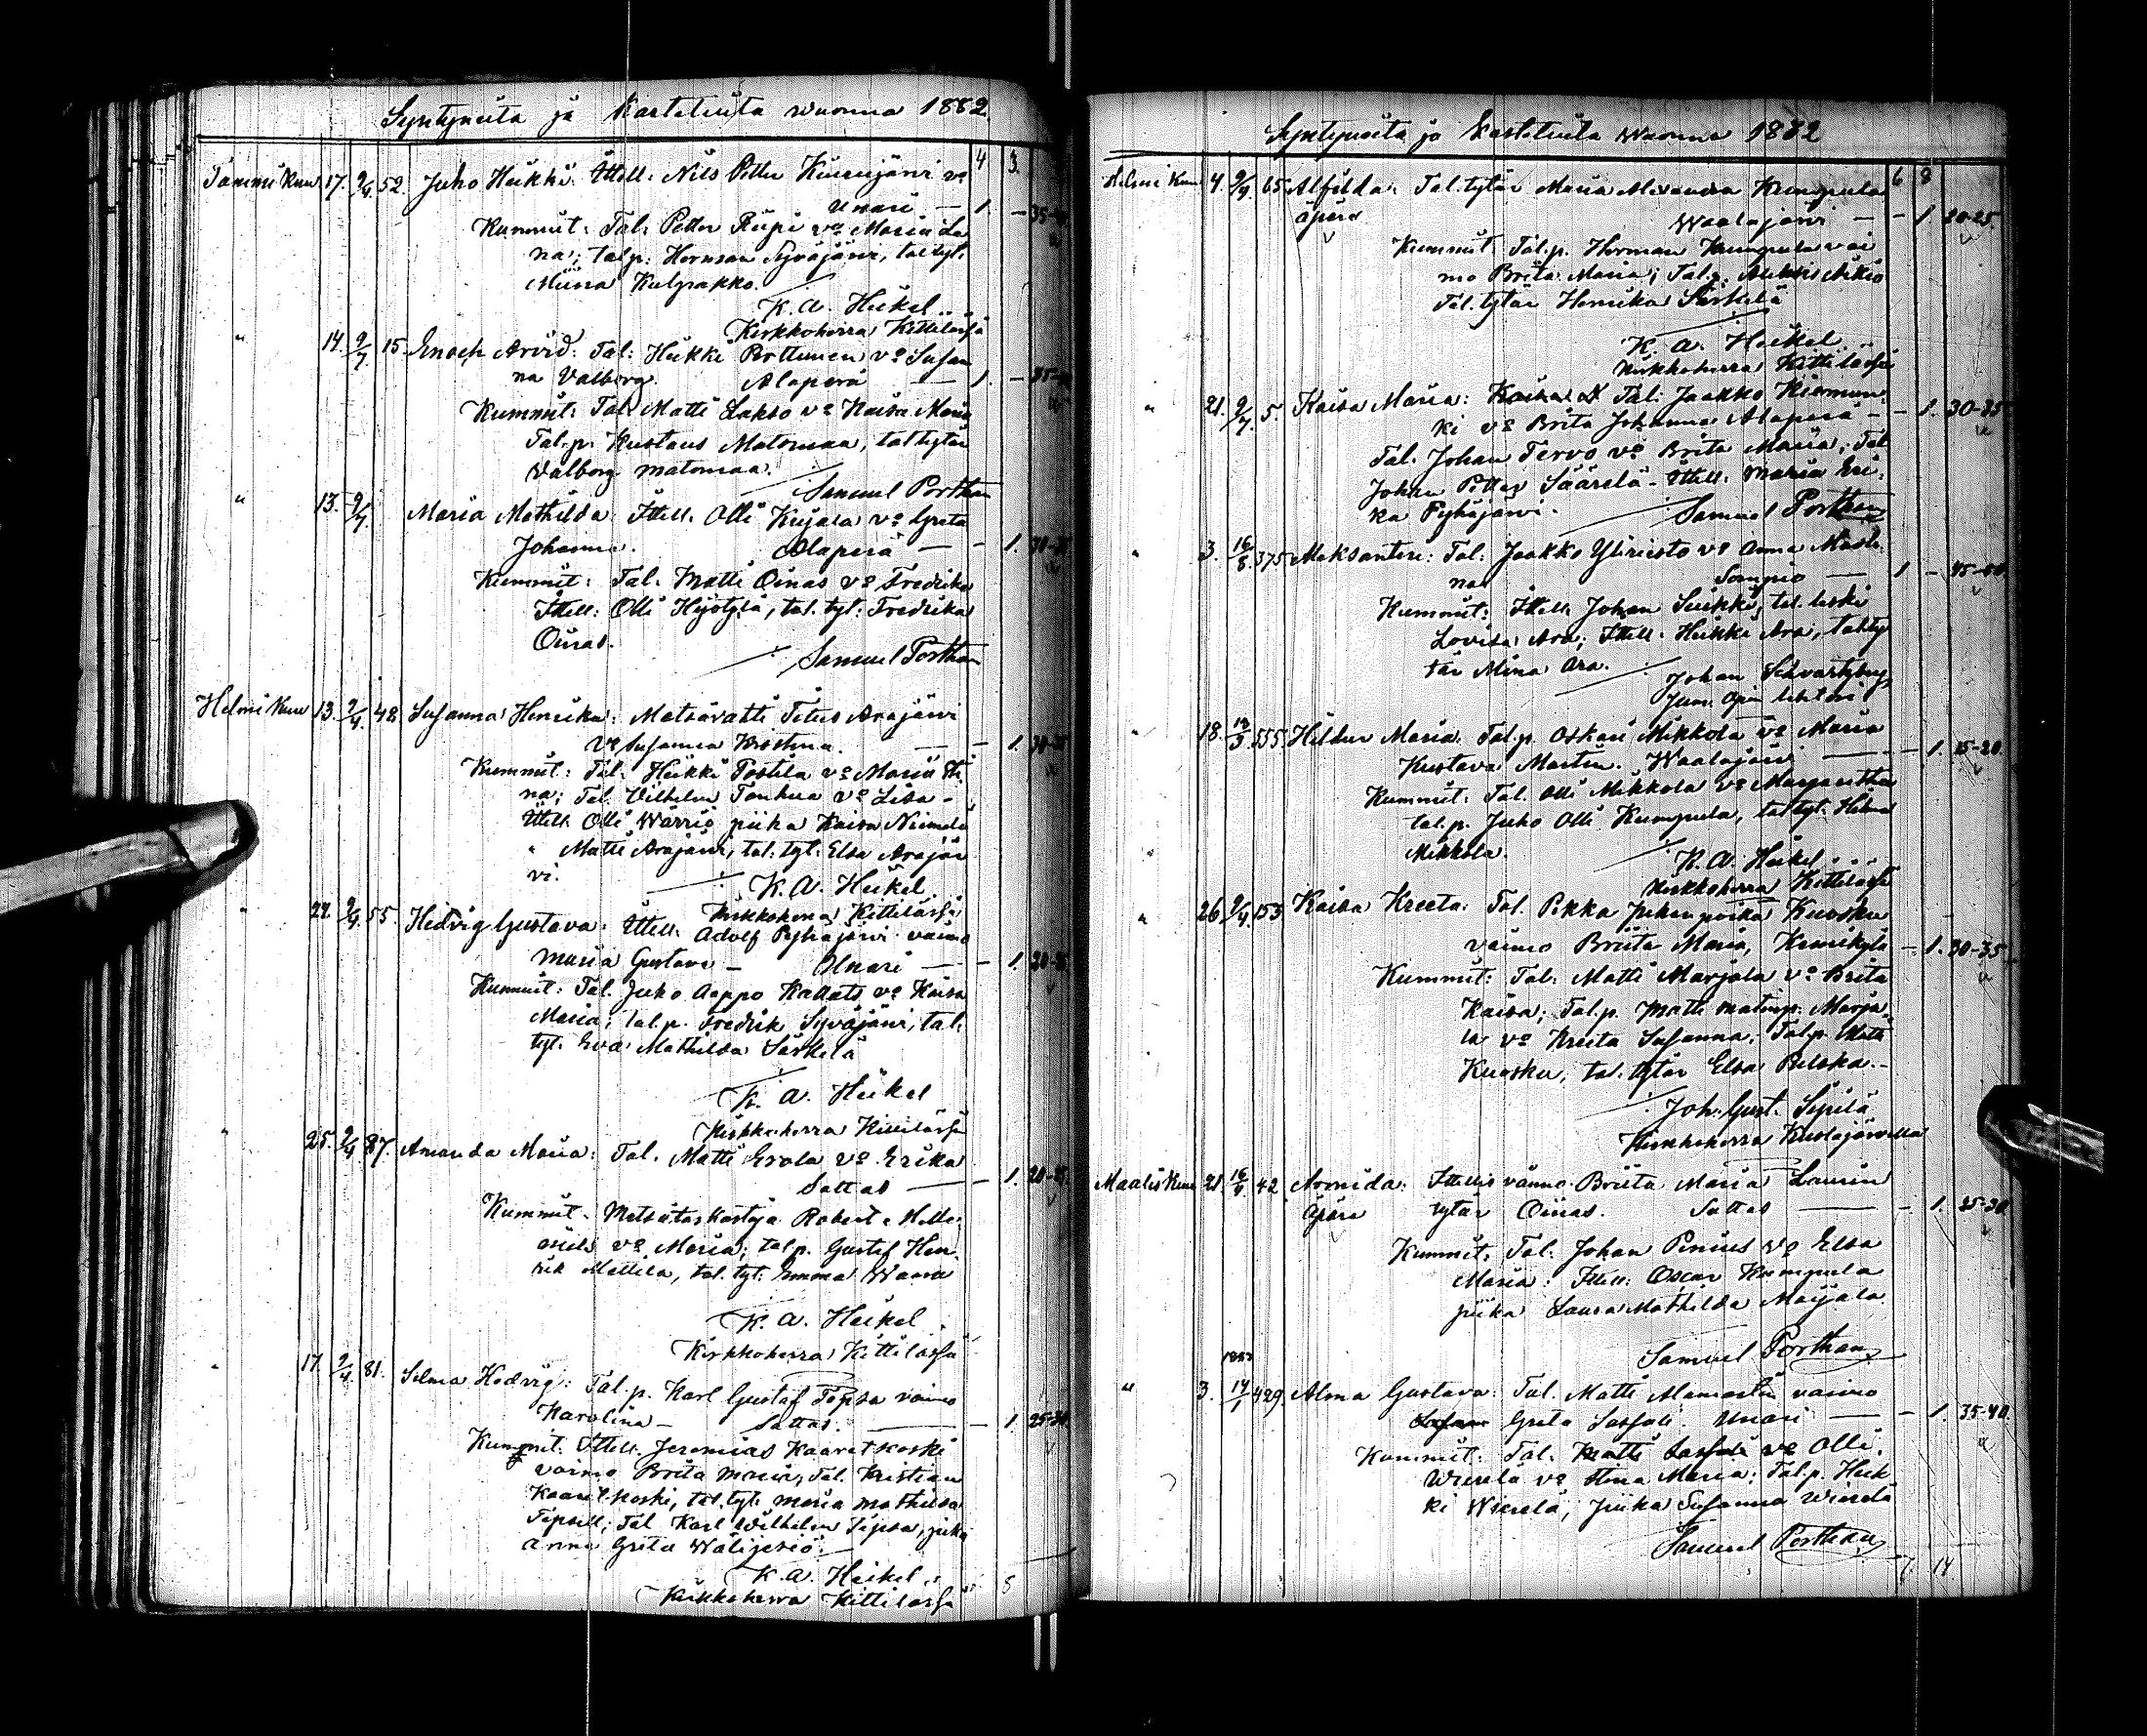 Syntyneitä ja Kastetuita wuonna 1882
4 3
Tammi Kuu 17. 9/4 52. Juho Heikki: Ittell. Nils Petter Kuusijärvi vo
Unari — 1. — 35-
Kummit: Tal. Petter Riipi vo Maria Le
na; tal.p. Herman Syväjärvi, tal.tyt.
Miina Kulpakko.
K. A. Heikel
Kirkkoherra Kittilässä
" 14. 9/7 15. Enoch Arvid: Tal: Heikki Porttinen vo Susan
na Valborg. Alaperä — 1. —
Kummit: Tal. Matti Lakso vo Kaisa Maria
Tal.p. Kustaus Matomaa, tal.tytär
Valborg Matomaa.
Samuel Porthan
" 13. 9/7. Maria Mathilda: Ittell. Olli Kujala vo Greta
Johanna. Alaperä — — 1.
Kummit: Tal. Matti Oinas vo Fredrika
Ittell: Olli Hyötylä, tal. tyt. Fredrika
Oinas.
Samuel Porthan
Helmi Kuu 13. 9/4. 48. Susanna Henrika: Metsävatti Titus Arajärvi
Vo Susanna Kristina. — — 1. 30-
Kummit: Tal. Heikki Postila vo Maria Sti
na; Tal. Vilhelm Tanhua vo Liisa -
Ittell. Olli Warrio piika Kaisa Niemelä
" Matti Arajärvi, tal. tyt. Elsa Arajär
vi.
K. A. Heikel
Kirkkoherra Kittilässä
" 27. 9/4. 55. Hedvig Gustava: Ittell. Adolf Pyhäjärvi vaimo
Maria Gustava — Unari — — 1. 20-
Kummit: Tal. Juho Aappo Kallats vo Kaisa
Maria; tal.p. Fredrik Syväjärvi, tal.
tyt. Eva Mathilda Särkelä
K. A. Heikel
Kirkkoherra Kittilässä
" 25. 9/4 87. Amanda Maria: Tal. Matti Erola vo Erika
Sattas — — 1. 20-25.
Kummit. Metsätarkastaja Robert
vo Maria; tal.p. Gustaf Hen
rik Mattila, tal. tyt. Emma Waara
K. A. Heikel
Kirkkoherra Kittilässä
" 17. 9/4. 81. Selma Hedvig: Tal.p. Karl Gustaf Tepsa vaimo
Karolina — Sattas. — — 1. 25-30.
Kummit. Ittell. Jeremias Kaaretkoski
vaimo Brita Maria; Tal. Kristian
Kaaretkoski, tal. tyt. Maria Mathilda
Tepsell; Tal. Karl Wilhelm Tepsa, piika
Anna Greta Wälijesiö.
K. A. Heikel
Kirkkoherra Kittilässä
5
Syntyneitä ja Kastetuita Wuonna 1882
6 8
Helmi Kuu 4. 9/4. 65. Alfilda: Tal. tytär Maria Alexandra Kumpula
äpärä Waalajärvi — — 1. 20-25.
Kummit. Tal.p. Herman Kumpula vai
mo Brita Maria; Tal.p. Aleksis Äikiö
Tal. tytär Henrika Särkelä
K. A. Heikel
Kirkkoherra Kittilässä
" 21. 9/7. 5. Kaisa Maria: Tal. Jaakko Kiermun
ki vo Brita Johanna Alaperä — — 1. 30-35
Tal. Johan Tervo vo Brita Maria; Tal
Johan Petter Säärelä - Ittell. Maria Eri
ka Pyhäjärvi.
Samuel Porthan
" 3. 16/8. 375. Aleksanteri: Tal. Jaakko Yliriesto vo Anna Mado
na Sompio — 1 — 45-50.
Kummit: Ittell. Johan Seikki, tal. leski
Lovisa Ara; Ittell. Heikki Ara, tal.ty
tär Mina Ara.
Johan Schvartzberg
Jum. opin lehtori
" 18. 12/3. 555. Hildur Maria: Tal.p. Oskari Mikkola vo Maria
Kustava Martin. Waalajärvi — — 1. 15-20.
Kummit: Tal. Olli Mikkola vo Margaretha
tal.p. Juho Olli Kumpula, tal.tyt. Hilma
Mikkola.
K. A. Heikel
Kirkkoherra Kittilässä
" 26. 9/4. 153. Kaisa Kreeta: Tal. Pekka Pekanpoika Kuosku
vaimo Briita Maria, Kemikylä — 1. 30-35
Kummit: Tal. Matti Marjala vo Brita
Kaisa; Tal.p. Matti Matinp. Marja
la vo Kreeta Susanna; Tal.p. Matti
Kuosku; tal. tytär Elsa Pulska.-
Joh. Gust. Sipilä
Kirkkoherra Kuolajärvellä
Maalis Kuu 21. 16/4. 42. Aronida: Ittellisvaimo Briita Maria Laurin
äpärä tytär Oinas. Sattas — — 1. 25-30
Kummit: Tal. Johan Penius vo Elsa
Maria: Ittell: Oscar Kumpula
piika Laura Mathilda Marjala
Samuel Porthan
1883
" 3. 14/1 429. Alma Gustava: Tal. Matti Alamartin vaimo
Greta Sassali. Unari — — 1. 35-40.
Kummit: Tal. Matti Sassali vo Olli
Wierelä vo Anna Maria: Tal.p. Heik
ki Wierelä; piika Susanna Wierelä
Samuel Porthan
7. 14